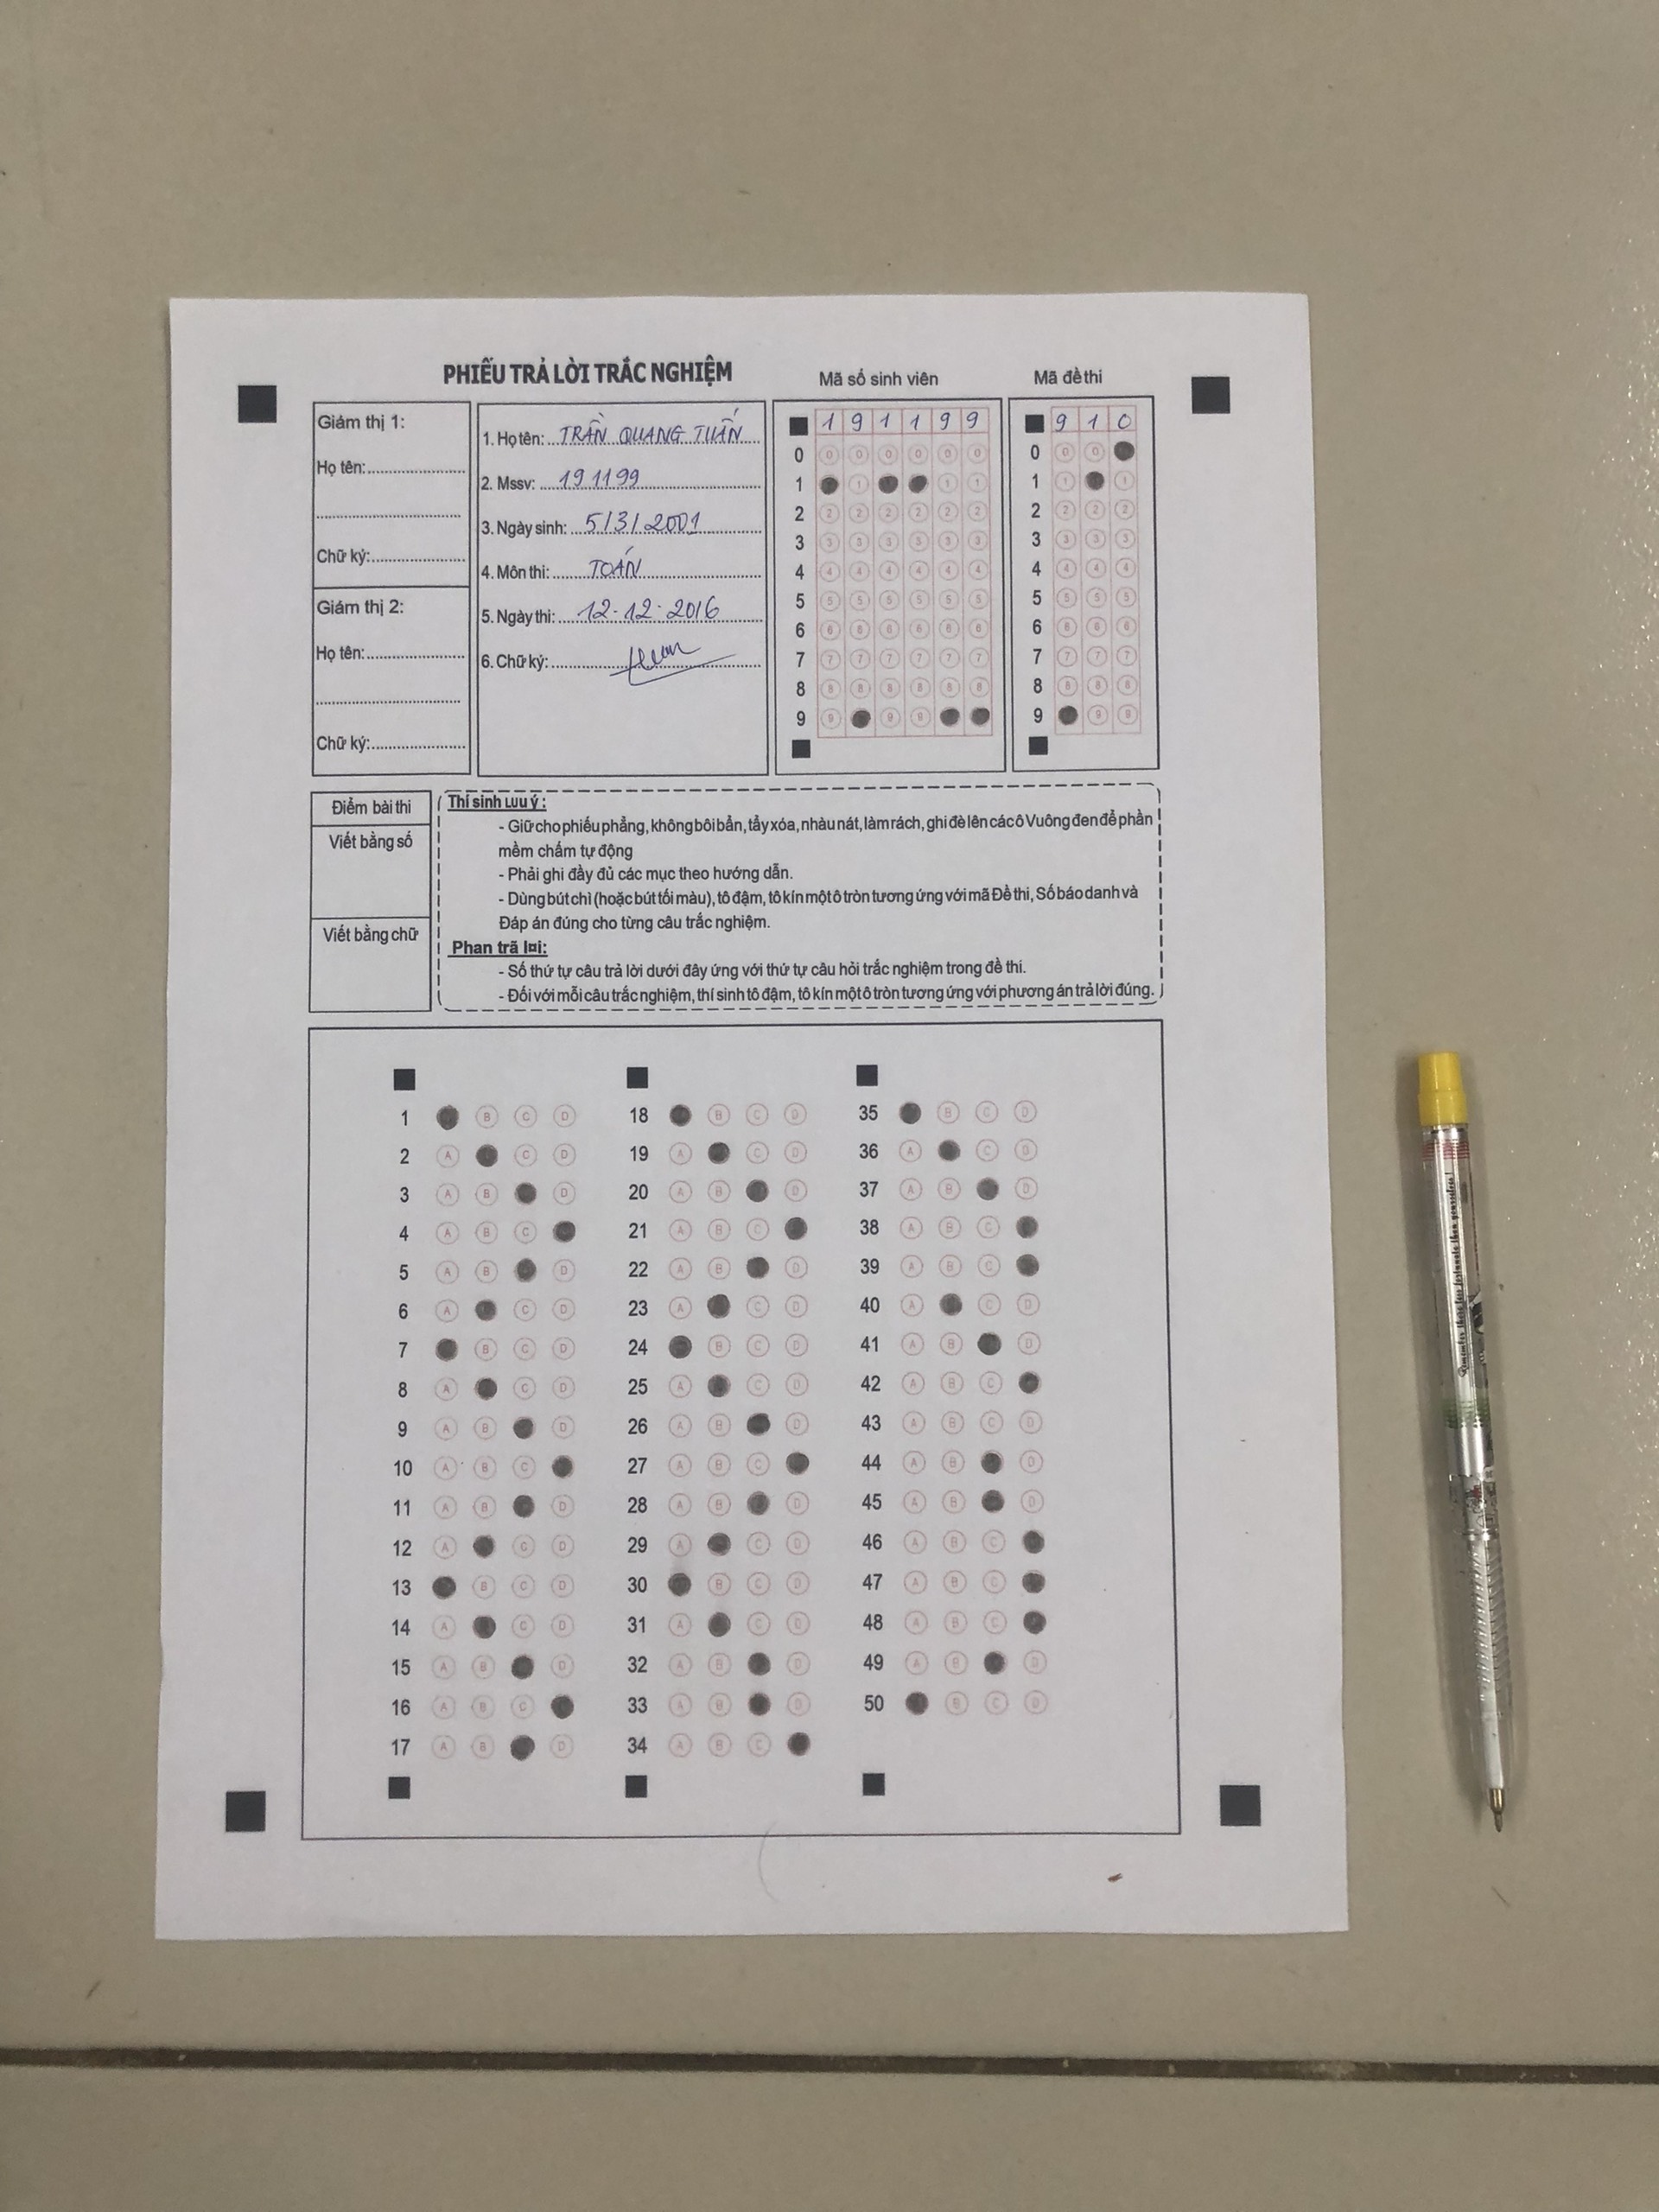 PHIẾU TRẢ LỜI TRẮC NGHIỆM
Mã số sinh viên
Mã đề thi
Giám thị 1:
Họ tên:
Chữ ký:
Giám thị 2:
Họ tên:
Chữ ký:
1. Họ tên: TRẦN QUANG TUẤN
2. Mssv: 191199
3. Ngày sinh: 5/3/2001
4. Môn thi: TOÁN
5. Ngày thi: 12.12.2016
6. Chữ ký:
1 9 1 1 9 9
0 0 0 0 0 0 0
1 1 1 1
2 2 2 2 2 2 2
3 3 3 3 3 3 3
4 4 4 4 4 4 4
5 5 5 5 5 5 5
6 6 6 6 6 6 6
7 7 7 7 7 7 7
8 8 8 8 8 8 8
9 9 9 9
9 1 0
0 0 0
1 1 1
2 2 2 2
3 3 3 3
4 4 4 4
5 5 5 5
6 6 6 6
7 7 7 7
8 8 8 8
9 9 9
Điểm bài thi
Viết bằng số
Viết bằng chữ
Thí sinh Lưu ý :
- Giữ cho phiếu phẳng, không bôi bẩn, tẩy xóa, nhàu nát, làm rách, ghi đè lên các ô Vuông đen để phần
mềm chấm tự động
- Phải ghi đầy đủ các mục theo hướng dẫn.
- Dùng bút chì (hoặc bút tối màu), tô đậm, tô kín một ô tròn tương ứng với mã Đề thi, Số báo danh và
Đáp án đúng cho từng câu trắc nghiệm.
Phan trã lơi:
- Số thứ tự câu trả lời dưới đây ứng với thứ tự câu hỏi trắc nghiệm trong đề thi.
- Đối với mỗi câu trắc nghiệm, thí sinh tô đậm, tô kín một ô tròn tương ứng với phương án trả lời đúng.
1 B C D
2 A C D
3 A B D
4 A B C
5 A B D
6 A C D
7 B C D
8 A C D
9 A B D
10 A B C
11 A B D
12 A C D
13 B C D
14 A C D
15 A B D
16 A B C
17 A B D
18 B C D
19 A C D
20 A B D
21 A B C
22 A B D
23 A C D
24 B C D
25 A C D
26 A B D
27 A B C
28 A B D
29 A C D
30 B C D
31 A C D
32 A B D
33 A B D
34 A B C
35 B C D
36 A C D
37 A B D
38 A B C
39 A B C
40 A C D
41 A B D
42 A B C
43 A B C D
44 A B D
45 A B D
46 A B C
47 A B C
48 A B C
49 A B D
50 B C D